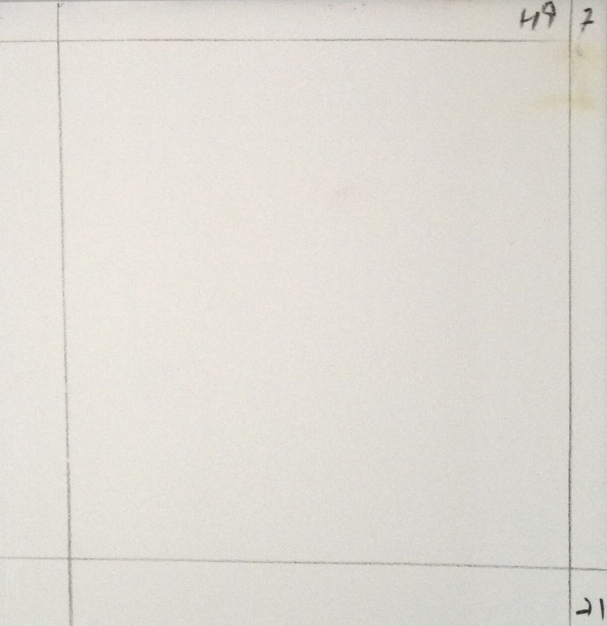 49 7
21